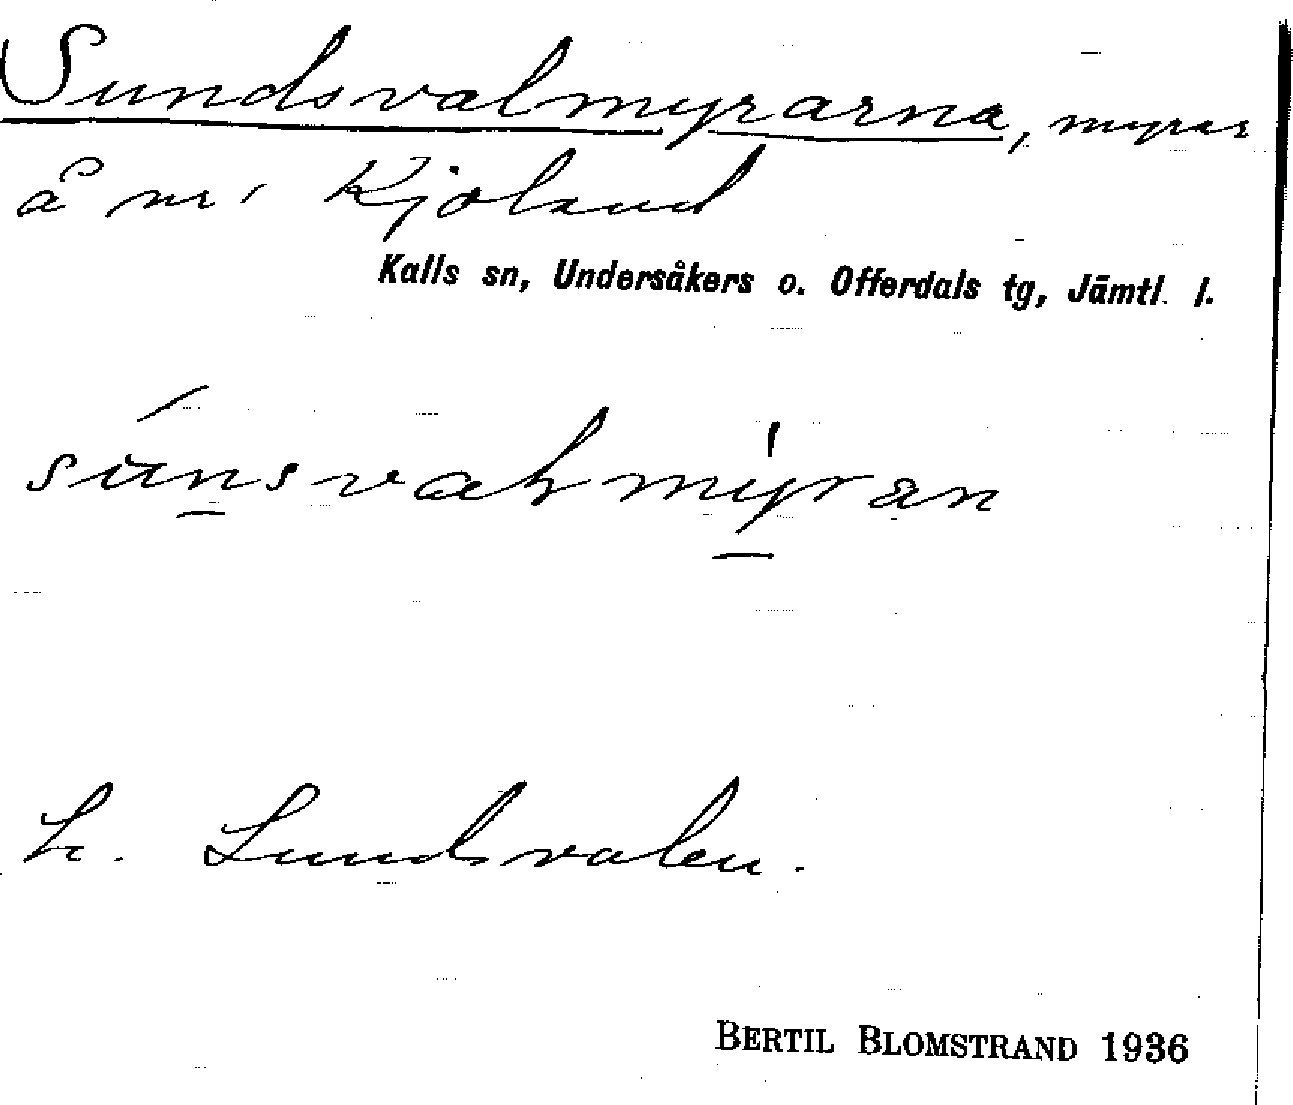 Sundsvalmyrarna, myrar
å nr 1 Kjoland
Kalls sn, Undersåkers o. Offerdals tg, Jämtl. l.
sunsvalmyran
L. Sundsvalen.
BERTIL BLOMSTRAND 1936